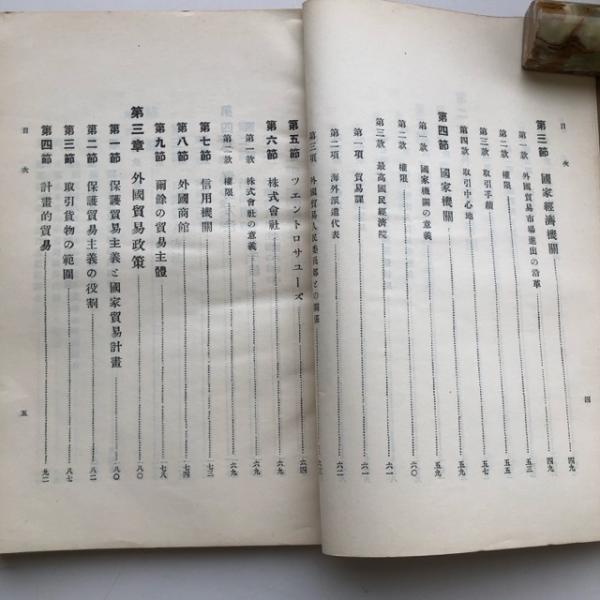 目次
第三節 國家經濟機關 四九
第一款 外國貿易市場進出の沿革 四九
第二款 權限 五三
第三款 取引手續 五五
第四款 取引中心地 五七
第四節 國家機關 五九
第一款 國家機關の意義 五九
第二款 權限 六〇
第三款 最高國民經濟院 六一
第一項 貿易課 六一
第二項 海外派遣代表 六二
第三項 外國貿易人民委員部との關係
四
第五節 ツエントロサユーズ 六四
第六節 株式會社 六九
第一款 株式會社の意義 六九
第二款 權限 六九
第七節 信用機關 七三
第八節 外國商館 七四
第九節 爾餘の貿易主體 七八
第三章 外國貿易政策 八〇
第一節 保護貿易主義と國家貿易計畫 八〇
第二節 保護貿易主義の役割 八二
第三節 取引貨物の範圍 八七
第四節 計畫的貿易 九二
目次
五